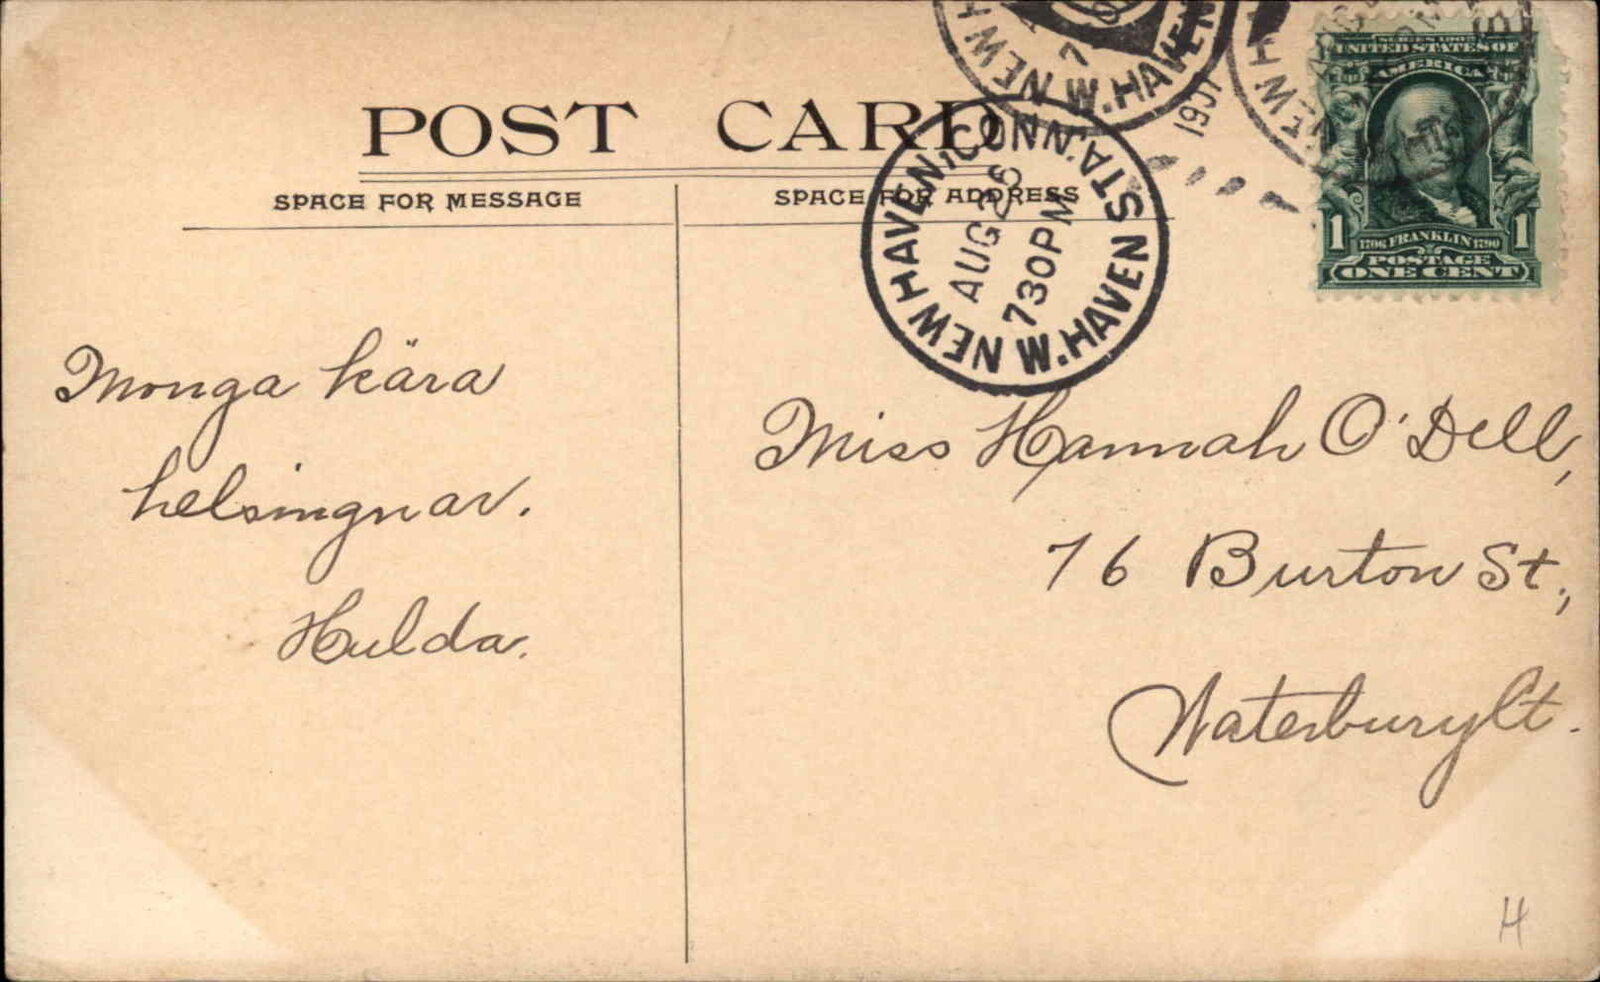 POST CARD
SPACE FOR MESSAGE
SPACE FOR ADDRESS
NEW HAVEN, CONN. W. HAVEN STA.
AUG 26
730PM
NEW H
W. HAVEN
1907
NEW H
SERIES 1902
UNITED STATES OF
AMERICA
1 1
1706 FRANKLIN 1790
POSTAGE
ONE CENT
Monga kära
helsingnar.
Hulda.
Miss Hannah O'Dell,
76 Burton St.,
Waterbury Ct.
H